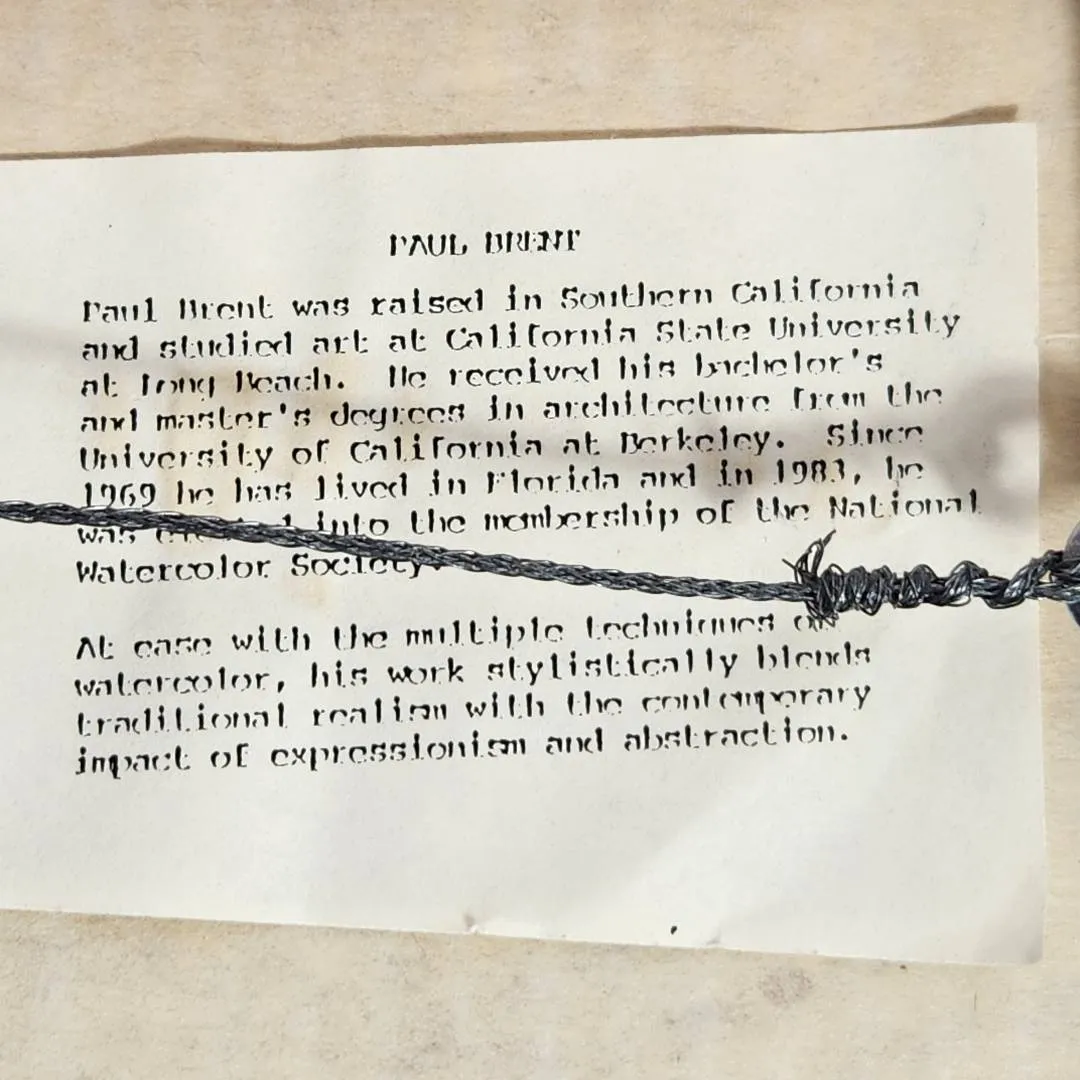 PAUL BRENT
Paul Brent was raised in Southern California
and studied art at California State University
at Long Beach. He received his bachelor's
and master's degrees in architecture from the
University of California at Berkeley. Since
1969 he has lived in Florida and in 1983, he
was into the membership of the National
Watercolor Society.
At ease with the multiple techniques of
watercolor, his work stylistically blends
traditional realism with the contemporary
impact of expressionism and abstraction.